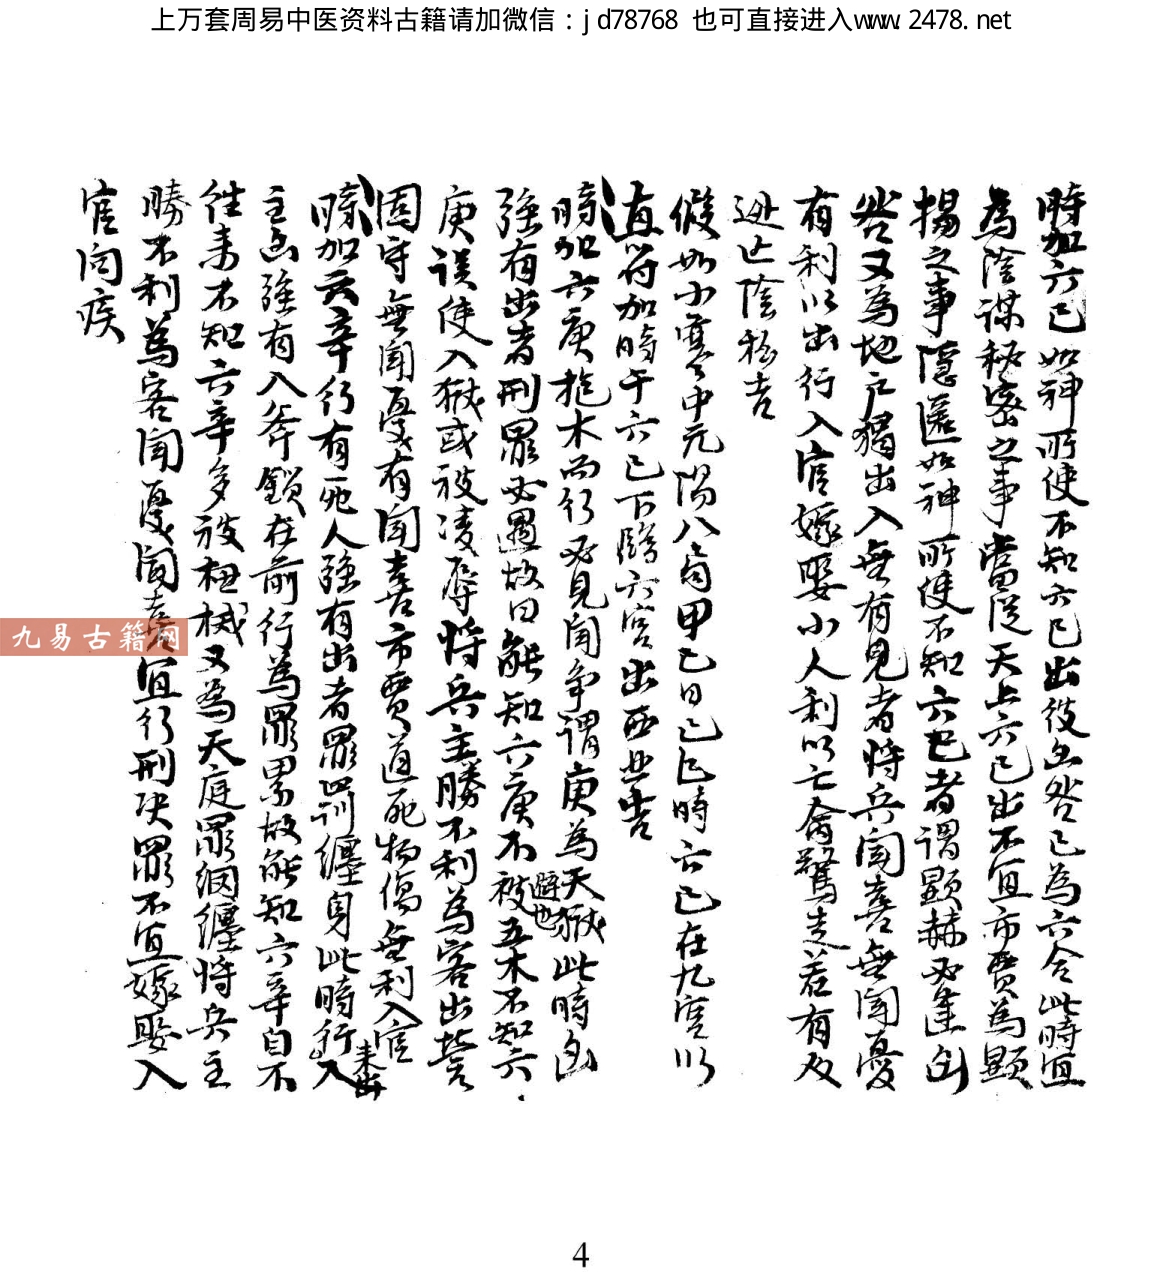 上万套周易中医资料古籍请加微信：jd78768 也可直接进入www.2478.net
時加六己如神所使不知六己出彼凶咎己為六合此時宜
為陰謀秘密之事當從天上六己出不宜市賈為顯
揚之事隱匿如神所使不知六己者謂顯赫必逢凶
咎又為地户獨出入無有見者将兵聞喜無聞憂
有利以出行入官嫁娶小人利以亡禽驚走若有及
逃亡陰私吉
假如小寒中元陽八局甲己日己巳時六己在九宫以
直符加時干六己下臨六宫出西北吉
時加六庚抱木而行必見鬪争謂庚為天獄此時凶
强有出者刑罪必遇故曰能知六庚不被五木不知六
避也
庚误使入狱或被凌辱将兵主勝不利為客出營
固守無聞憂有聞喜市賈道死物傷無利入官
時加六辛行有死人强有出者罪罰纏身此時行入
来出
主凶强有入斧鎖在前行為罪累故能知六辛自不
往来不知六辛多被杻械又為天庭罪綱纏将兵主
勝不利為客聞憂聞喜宜行刑决罪不宜嫁娶入
官问疾
九易古籍网
4